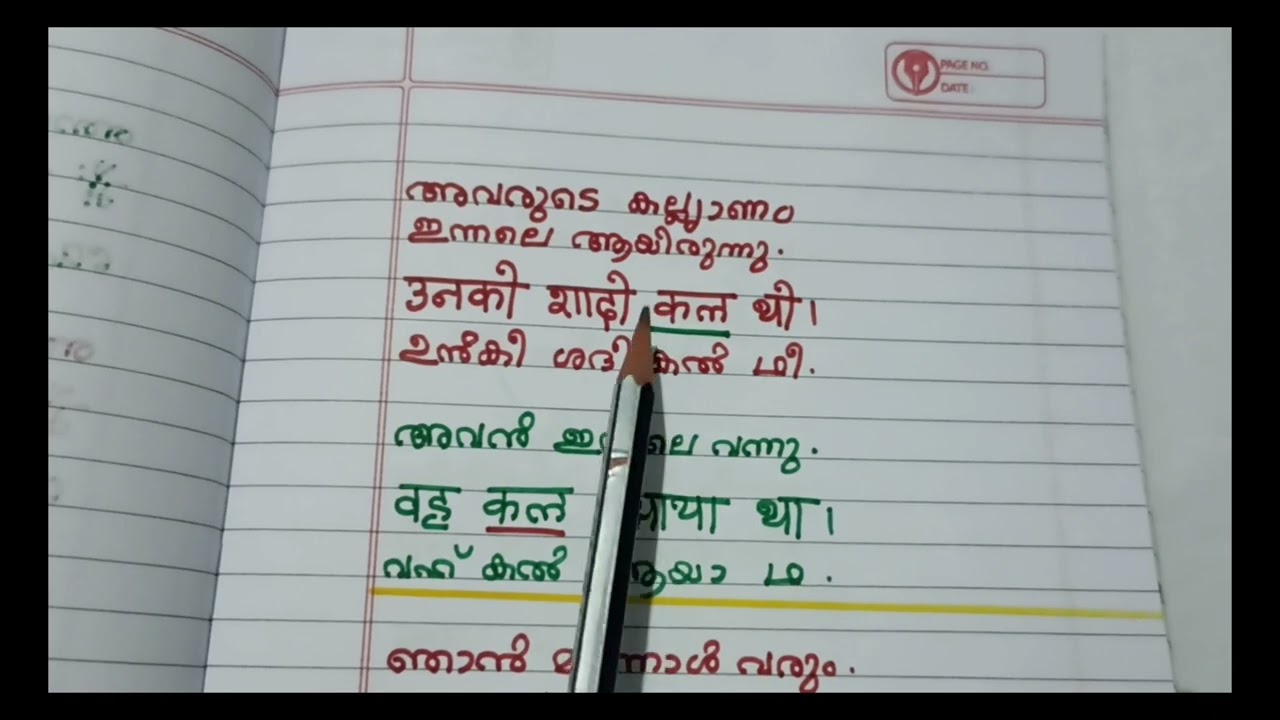 PAGE NO.
DATE:
അവരുടെ കല്ല്യാണം
ഇന്നലെ ആയിരുന്നു.
उनकी शादी कल थी।
ഉൻകി ശദി കൽ ഥീ.
അവൻ വന്നു.
वह कल था।
വഹ് കൽ ആയാ ഥ.
ഞാൻ വരും.